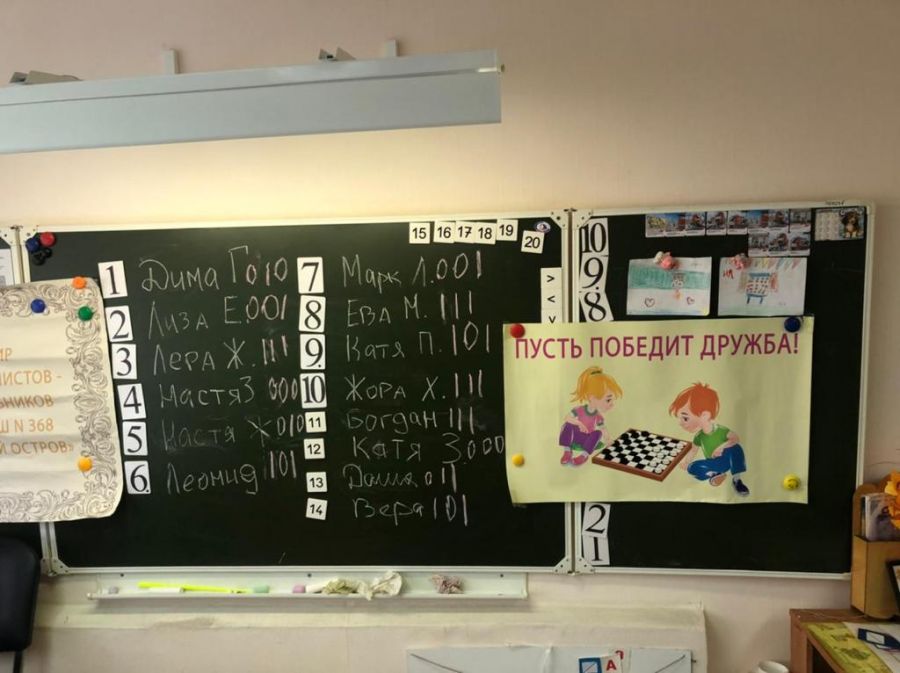 15 16 17 18 19 20
1 Дима Г 010
2 Лиза Е. 001
3 Лера Ж. 111
4 Настя З 000
5 Настя Ж 010
6. Леонид 101
7 Марк Л. 001
8 Ева М. 111
9. Катя П. 101
10 Жора Х. 111
11 Богдан 111
12 Катя З. 000
13 Даша 011
14 Вера 101
>
<
10
9.
8
2
1
ПУСТЬ ПОБЕДИТ ДРУЖБА!
ИСТОВ -
Ш N 368
ОСТРОВ»
А